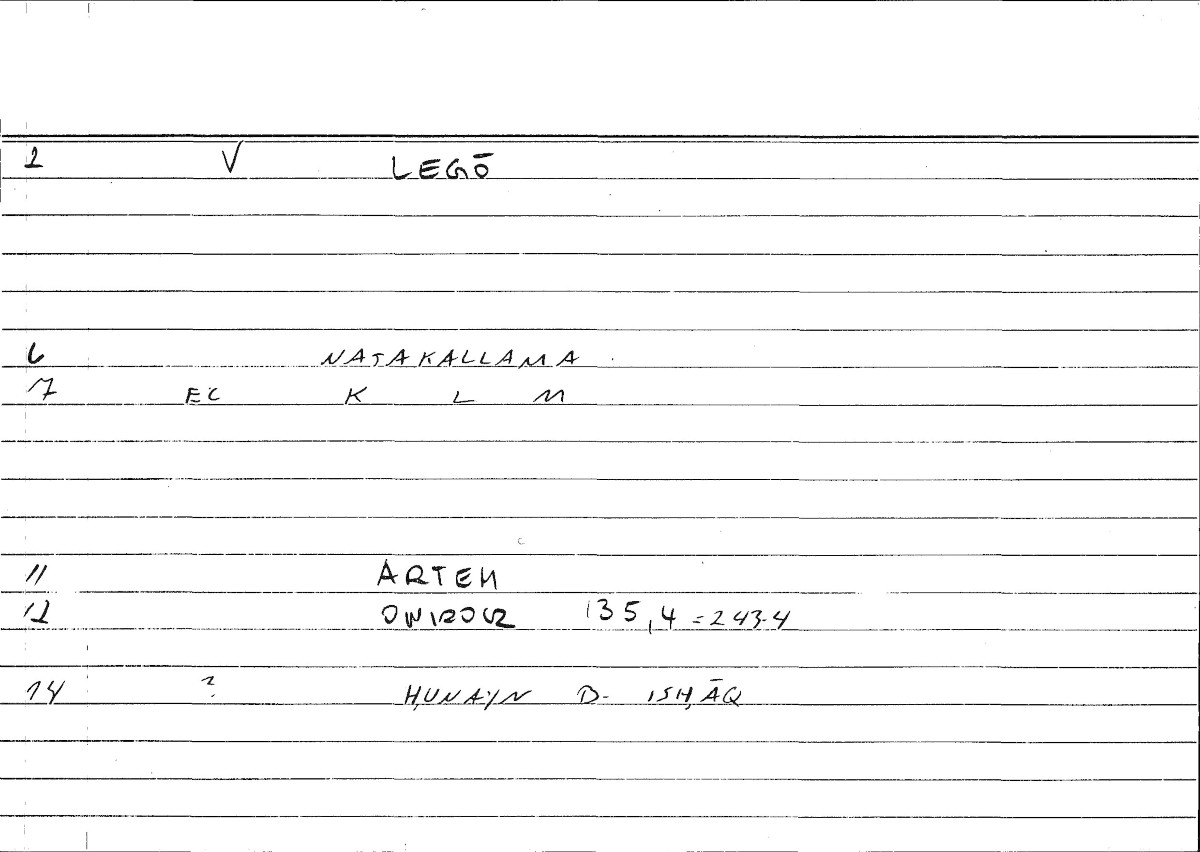 2 V LEGŌ
6 NATAKALLAMA
7 EC K L M
11 ARTEM
12 ONIROCR 135,4 = 243.4
14 ? ḤUNAYN B. ISḤĀQ